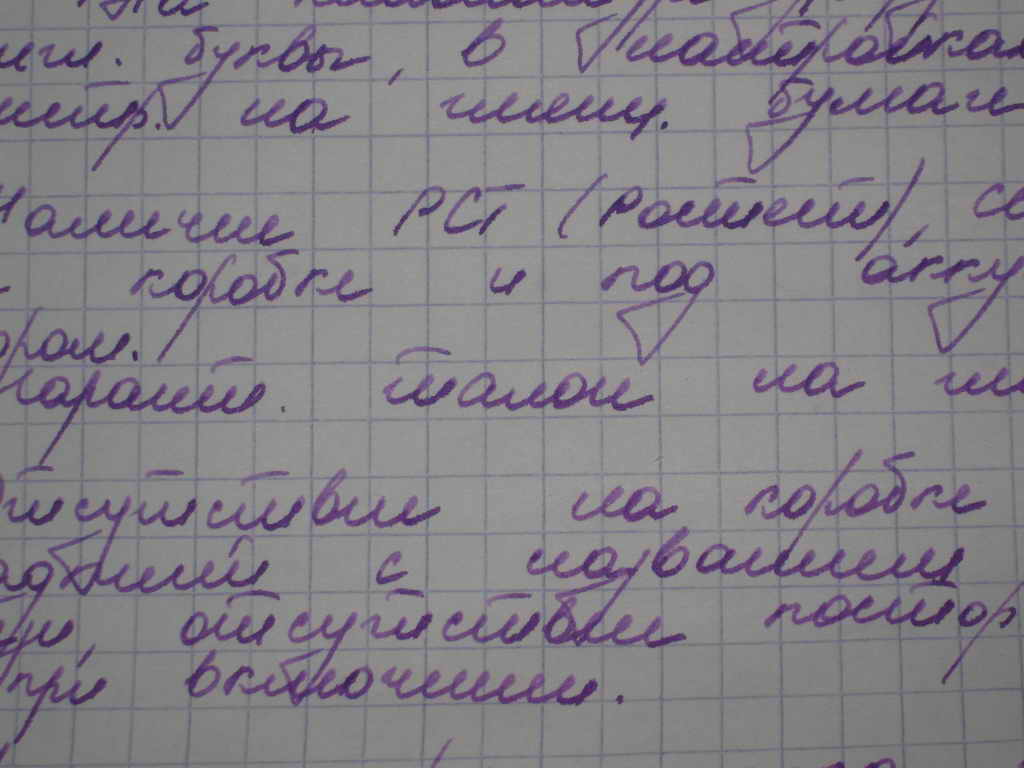 На
нгл. буквы, в настройках
интр. на гигиен. бумаги
Наличие РСТ (Ростест), се
коробке и под акку
ором.
Гарант. талон на ги
Отсутствие на коробке
адписей с названием
ри, отсутствие постор
при включении.